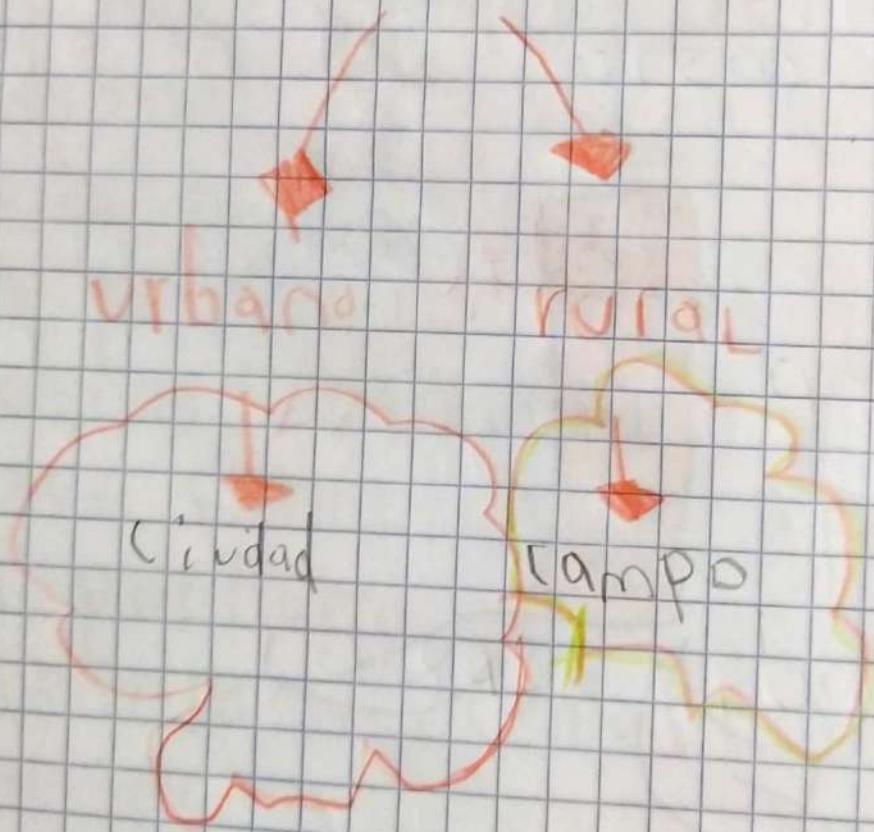 urbano rural
Ciudad Campo